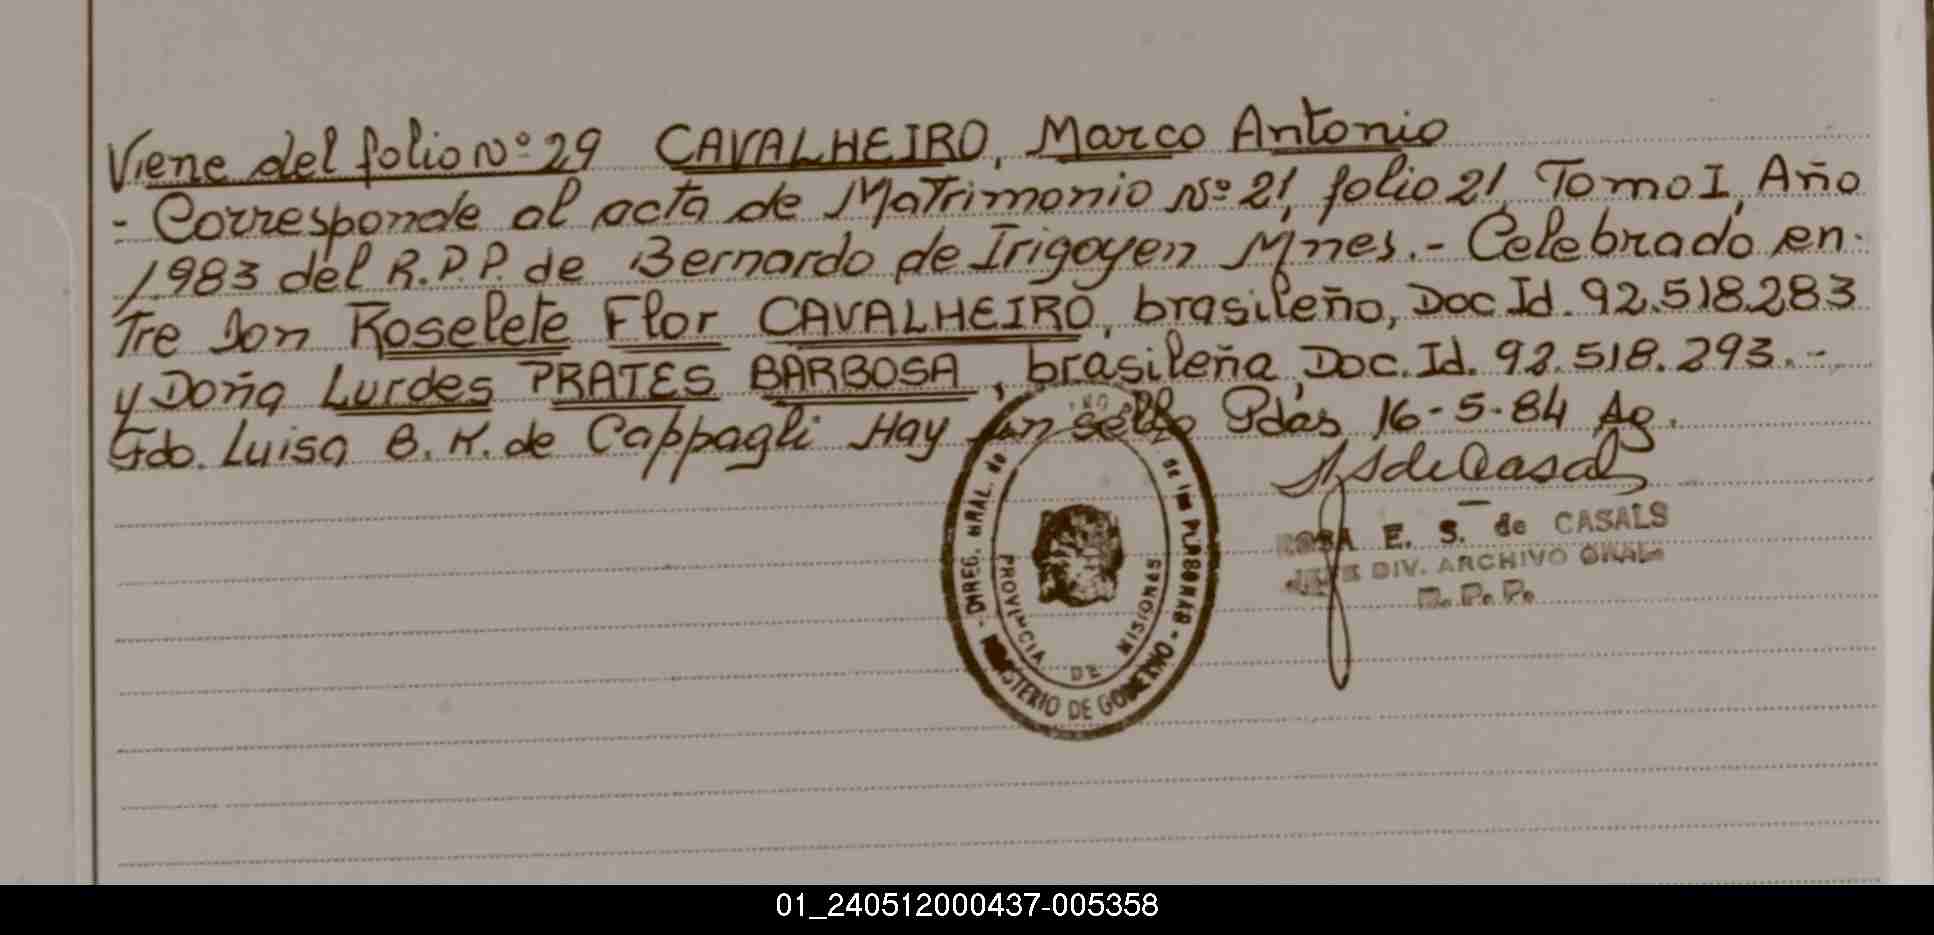 Viene del folio Nº 29 CAVALHEIRO, Marco Antonio
- Corresponde al acta de Matrimonio Nº 21, folio 21, Tomo I, Año
1983 del R.P.P. de Bernardo de Irigoyen Mnes.- Celebrado en-
tre Don Roselete Flor CAVALHEIRO, brasileño, Doc Id. 92.518283
y Doña Lurdes PRATES BARBOSA, brasileña, Doc. Id. 92.518.293.-
Fdo. Luisa B. K. de Cappagli Hay un sello Pdas 16-5-84 Ag.
ROSA E. S. de CASALS
JEFE DIV. ARCHIVO GRAL.
R. P. P.
- DIREG. GRAL. de de las PERSONAS -
MINISTERIO DE GOBIERNO
PROVINCIA DE MISIONES
01_240512000437-005358